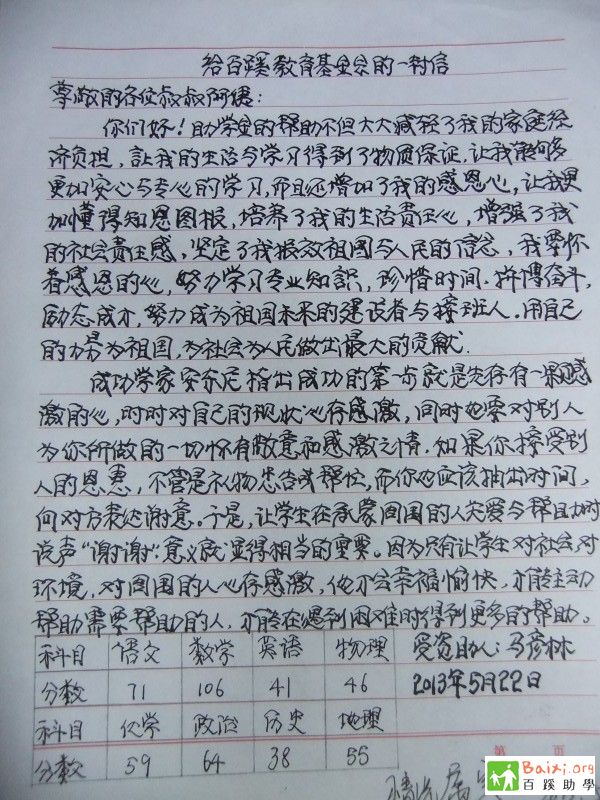 给百蹊教育基金会的一封信
尊敬的各位叔叔阿姨：
你们好！助学金的帮助不但大大减轻了我的家庭经
济负担，让我的生活与学习得到了物质保证，让我能够多
更加安心与专心的学习，而且还增加了我的感恩心，让我更
加懂得知恩图报，培养了我的生活责任心，增强了我
的社会责任感，坚定了我报效祖国与人民的信念，我要怀
着感恩的心，努力学习专业知识，珍惜时间．拼博奋斗，
励志成才，努力成为祖国未来的建设者与接班人．用自己
的力量为祖国，为社会为人民做出最大的贡献．
成功学家安东尼指出成功的第一步就是先存有一颗感
激的心，时时对自己的现状心存感激，同时也要对别人
为你所做的一切怀有敬意和感激之情．如果你接受别
人的恩惠，不管是礼物忠告或帮忙，而你也应该抽出时间，
向对方表达谢意．于是，让学生在承蒙周围的人关爱与帮助时
说声"谢谢"．意义就显得相当的重要。因为只有让学生对社会，对
环境，对周围的人心存感激，他才会幸福愉快，才能主动
帮助需要帮助的人，才能在遇到困难时得到更多的帮助。
科目 语文 数学 英语 物理 受资助人：马彦林
分数 71 106 41 46 2013年5月22日
科目 化学 政治 历史 地理
分数 59 64 38 55
第 页
Baixi.org
百蹊助學